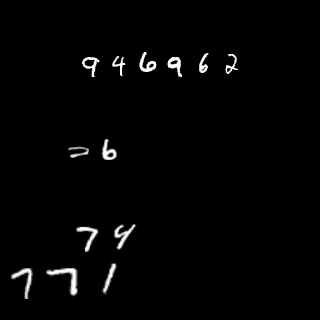 946962
=6
74
771